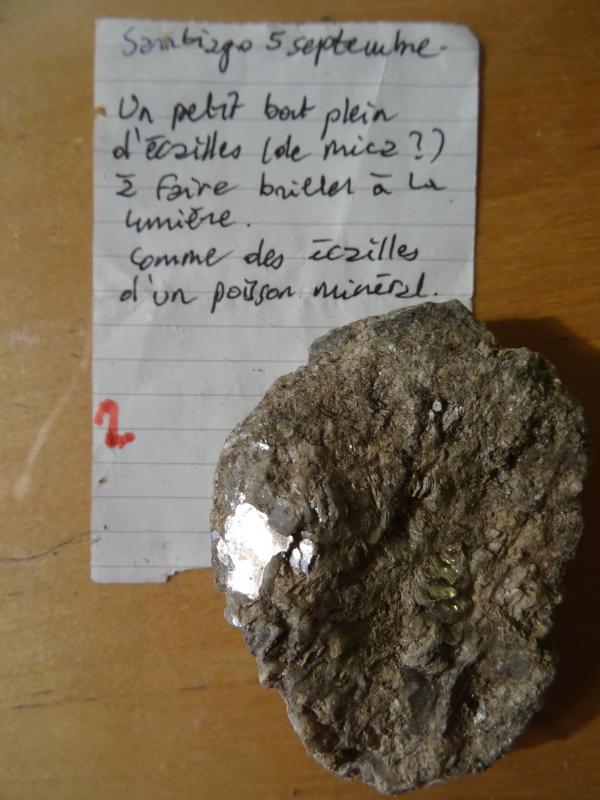 Sambiago 5 septembre.
Un petit bout plein
d'écailles (de mica?)
à faire briller à la
lumière.
comme des écailles
d'un poisson minéral.
2